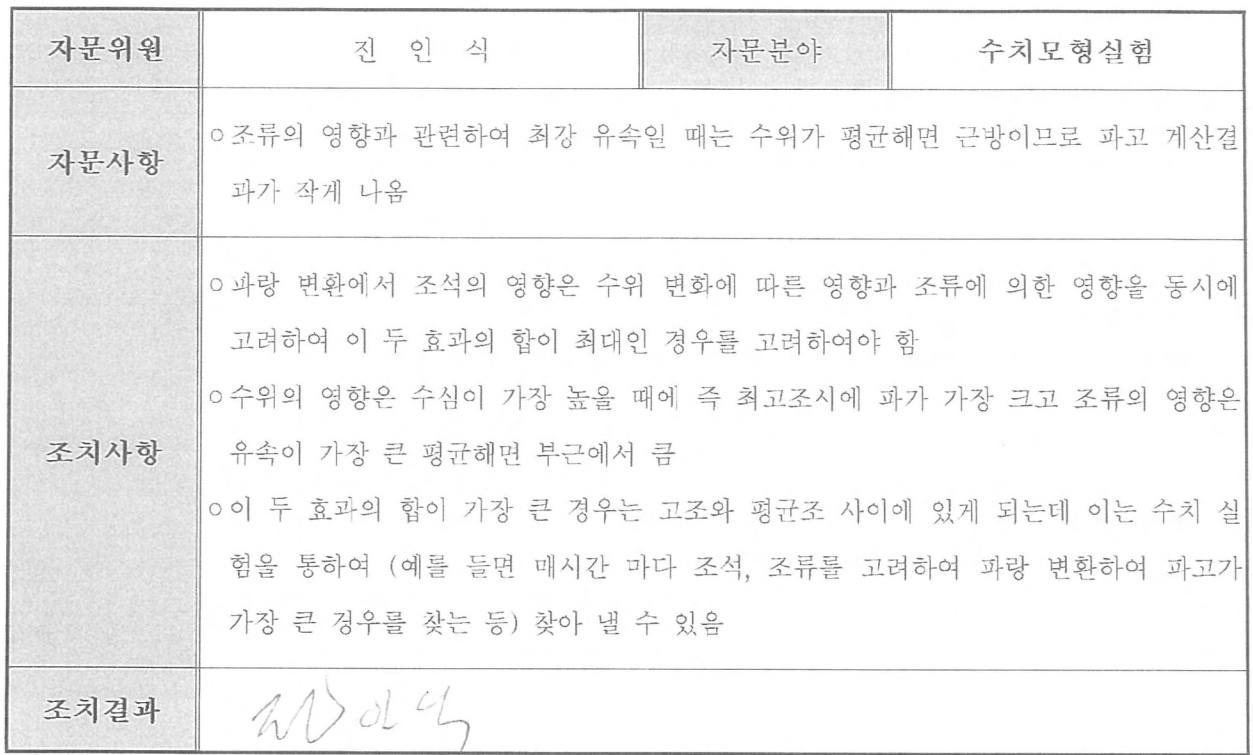 자문위원 진 인 식 자문분야 수치모형실험
자문사항
○조류의 영향과 관련하여 최강 유속일 때는 수위가 평균해면 근방이므로 파고 게산결
과가 작게 나옴
조치사항
○파랑 변환에서 조석의 영향은 수위 변화에 따른 영향과 조류에 의한 영향을 동시에
고려하여 이 두 효과의 합이 최대인 경우를 고려하여야 함
○수위의 영향은 수심이 가장 높을 때에 즉 최고조시에 파가 가장 크고 조류의 영향은
유속이 가장 큰 평균해면 부근에서 큼
○이 두 효과의 합이 가장 큰 경우는 고조와 평균조 사이에 있게 되는데 이는 수치 실
험을 통하여 (예를 들면 매시간 마다 조석, 조류를 고려하여 파랑 변환하여 파고가
가장 큰 경우를 찾는 등) 찾아 낼 수 있음
조치결과